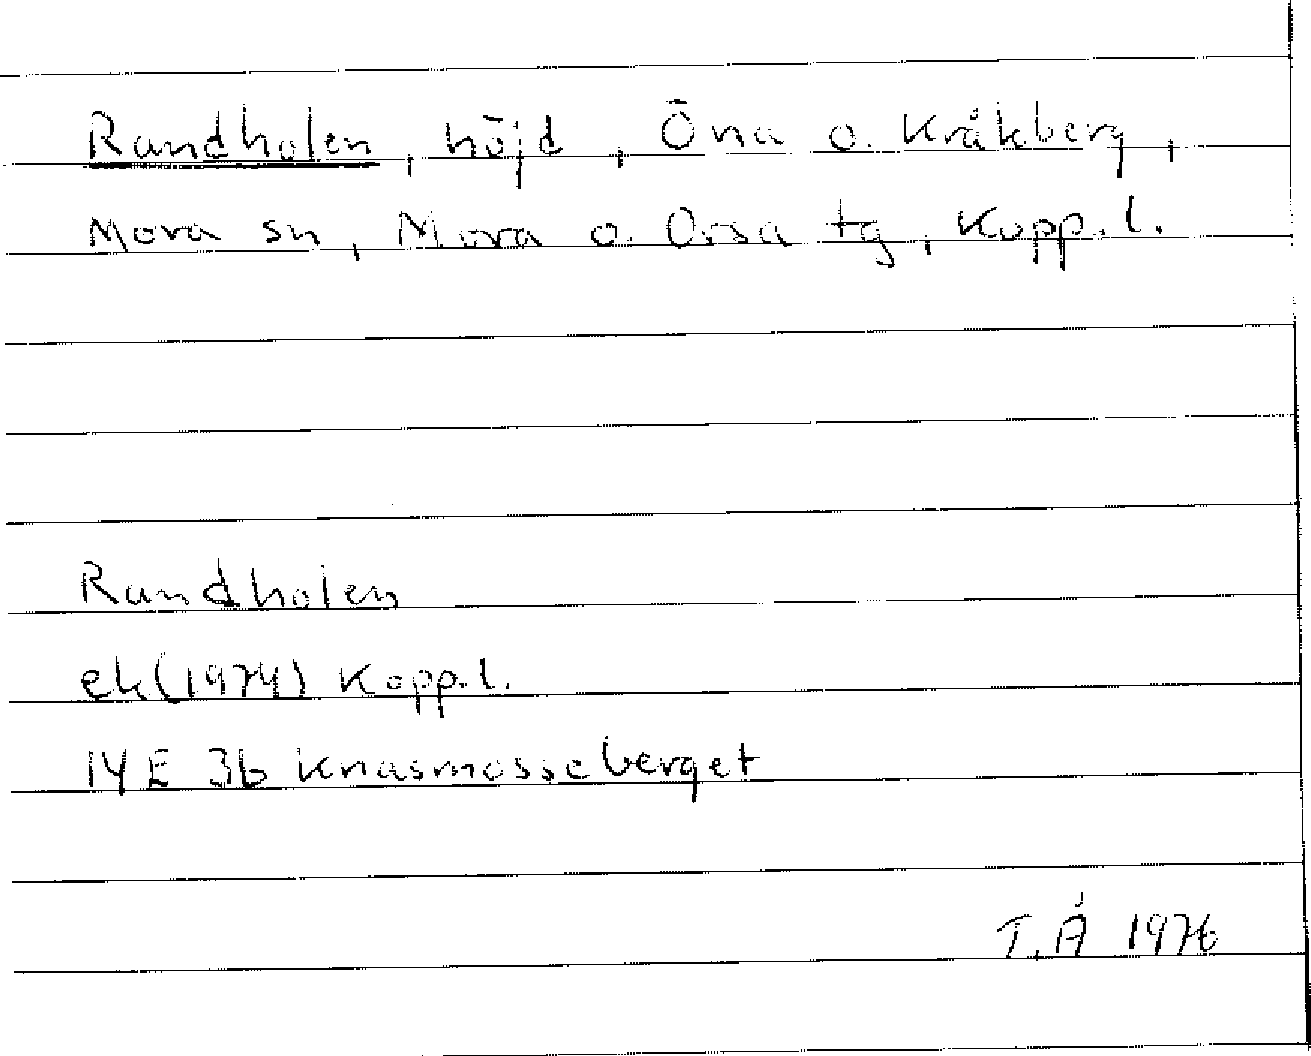 Randholen, höjd, Öna o. Kråkberg,
Mora sn, Mora o. Orsa tg, Kopp. l.
Randholen
ek(1974) Kopp. l.
14E 3b Knasmosseberget
T.Å 1976